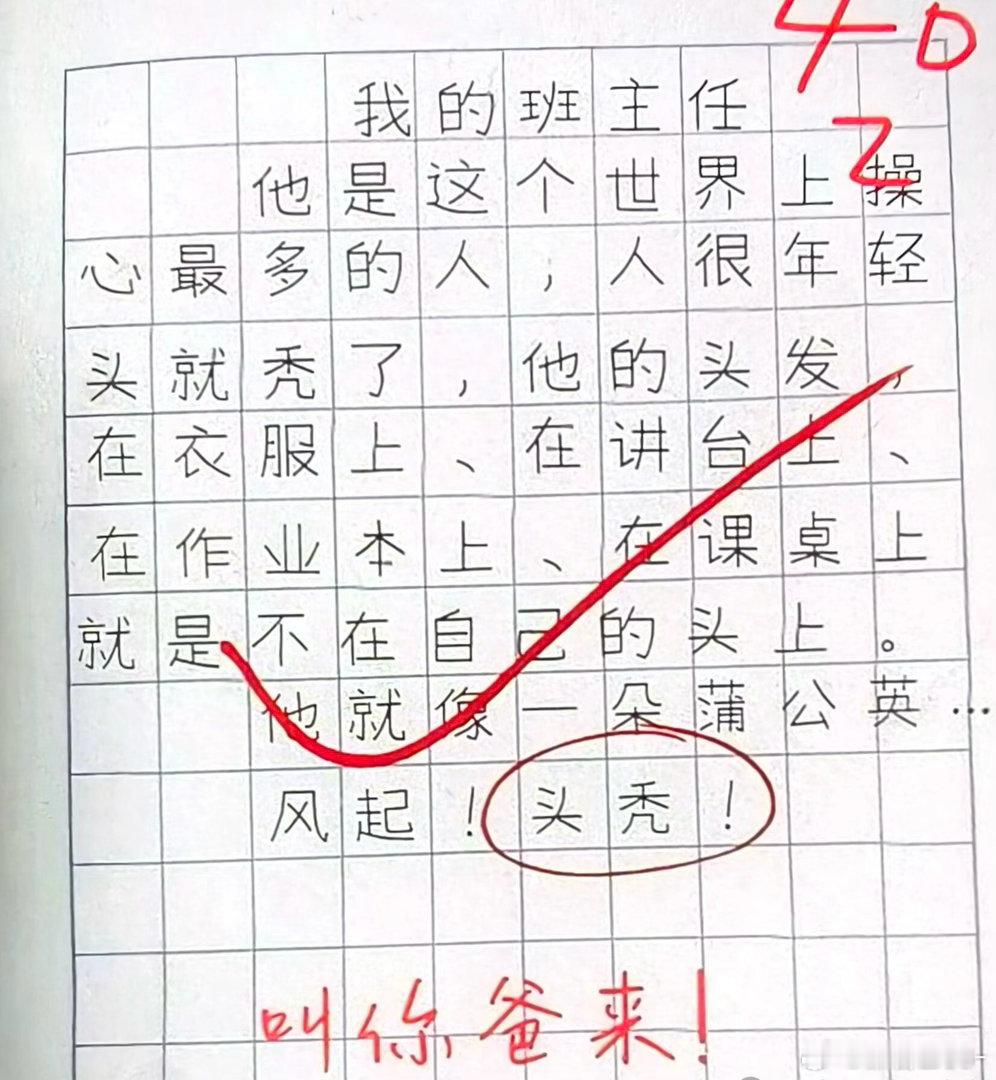 40
Z
我的班主任
他是这个世界上操
心最多的人，人很年轻
头就秃了，他的头发，
在衣服上、在讲台上、
在作业本上、在课桌上
就是不在自己的头上。
他就像一朵蒲公英…
风起！头秃！
叫你爸来！